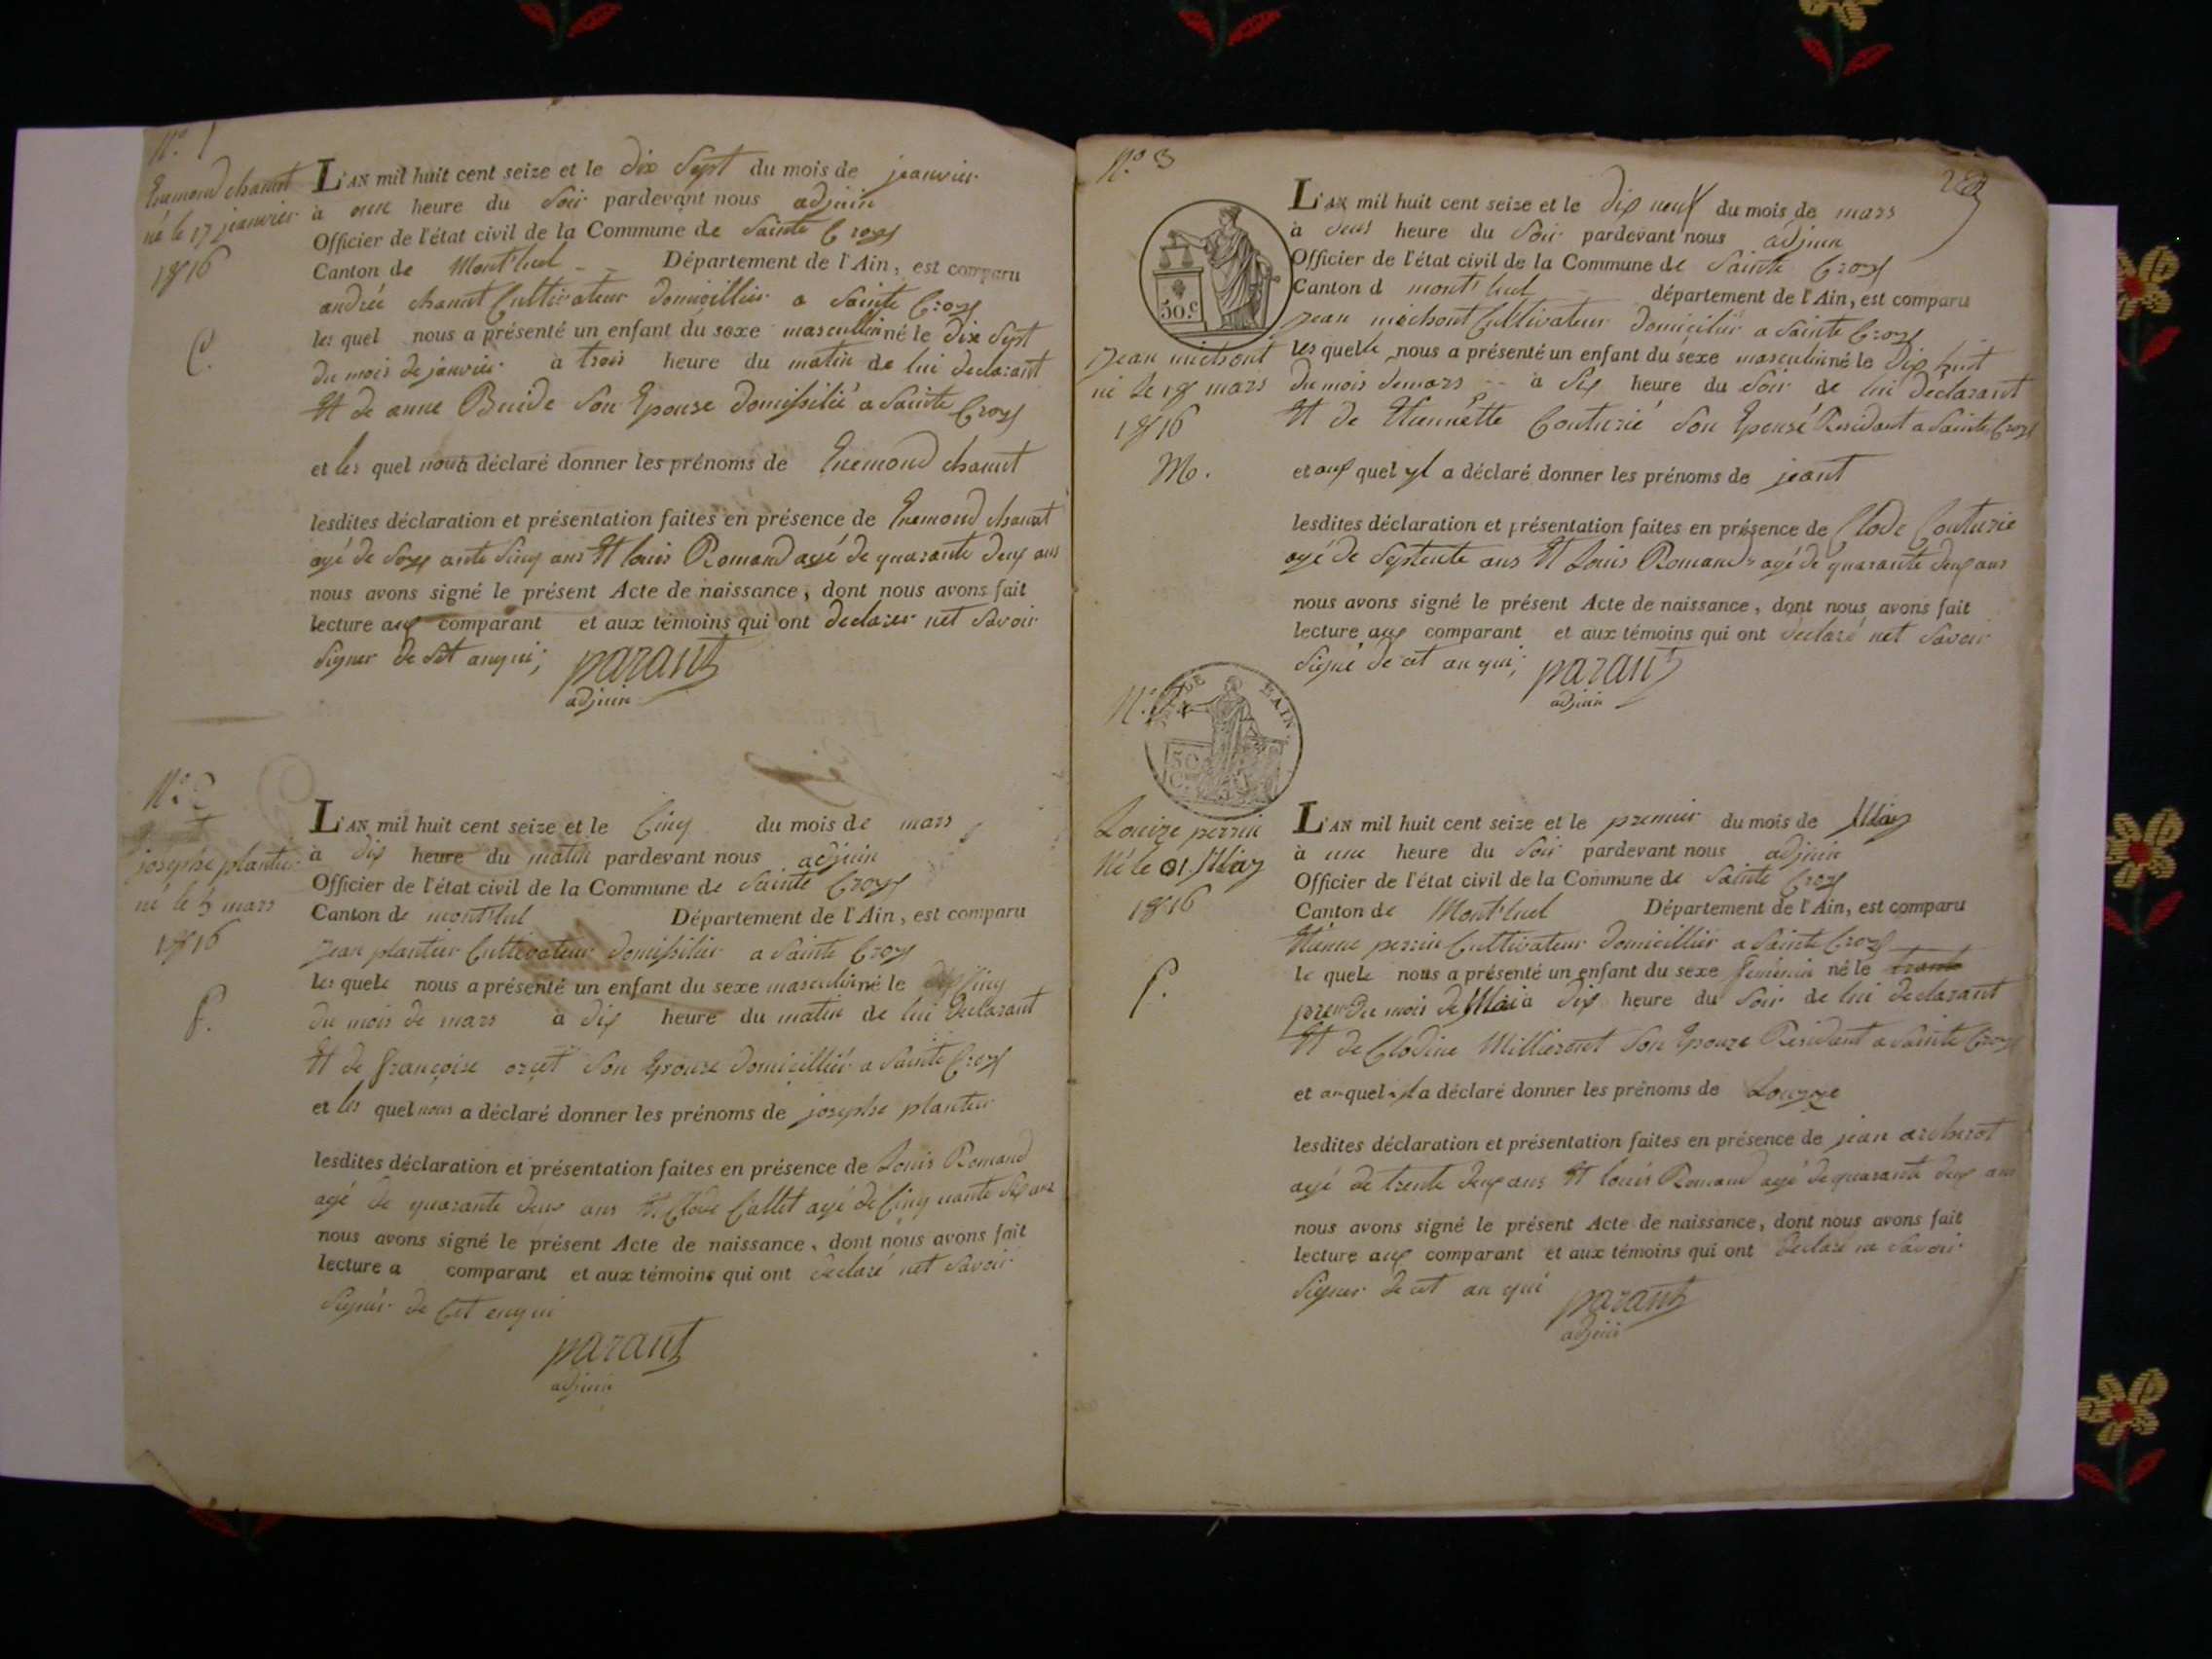 N.o 1
Enemond chanut
né le 17 janvier
1816
C.
L'AN mil huit cent seize et le dix Sept du mois de jeanvier
à une heure du Soir pardevant nous adjuin
Officier de l'état civil de la Commune de Sainte Croys
Canton de Mont'luel Département de l'Ain, est comparu
andrée chanut Cultivateur domicillier a Sainte Croys
les quel nous a présenté un enfant du sexe masculin né le dix Sept
du mois de janvier à trois heure du matin de lui declarant
Et de anne Buide Son Epouse domissilié a Sainte Croys
et les quel nous a déclaré donner les prénoms de Enemond chanut
lesdites déclaration et présentation faites en présence de Enemond chanut
agé de Soys ante Sinq ans Et louis Romand agé de quarante deux ans
nous avons signé le présent Acte de naissance, dont nous avons fait
lecture aux comparant et aux témoins qui ont declarer net Savoir
Signer de Set anqui;
parant
adjuin
N.o 2
josephe plantier
né le 5 mars
1816
P.
L'AN mil huit cent seize et le Cinq du mois de mars
à dix heure du matin pardevant nous adjuin
Officier de l'état civil de la Commune de Sainte Croys
Canton de mont'luel Département de l'Ain, est comparu
Jean plantier Cultivateur domissilier a Sainte Croys
les quele nous a présenté un enfant du sexe masculin né le Cinq
du mois de mars à dix heure du matin de lui declarant
Et de françoise orcet Son Epouze domicillié a Sainte Croys
et les quel nous a déclaré donner les prénoms de josephe plantier
lesdites déclaration et présentation faites en présence de Louis Romand
agé de quarante deux ans Et Clode Callet agé de Cinq uante Six ans
nous avons signé le présent Acte de naissance, dont nous avons fait
lecture a comparant et aux témoins qui ont declaré net Savoir
Signér de Cet enqui
parant
adjuin
N.o 3
50.c
Jean michont
né le 18 mars
1816
M.
L'AN mil huit cent seize et le dix neuf du mois de mars
à deus heure du Soir pardevant nous adjuin
Officier de l'état civil de la Commune de Sainte Croys
Canton d mont'luel département de l'Ain, est comparu
jean michont Cultivateur domicilié a Sainte Croys
les quelle nous a présenté un enfant du sexe masculin né le dix huit
du mois de mars à Six heure du Soir de lui déclarant
Et de Etiennette Couturié Son Epouse Residant a Sainte Croys
et aux quel yl a déclaré donner les prénoms de jeant
lesdites déclaration et présentation faites en présence de Clode Couturie
agé de Septente ans Et Louis Romand agé de quarante deux ans
nous avons signé le présent Acte de naissance, dont nous avons fait
lecture aux comparant et aux témoins qui ont declaré net Savoir
Signé de cet an qui;
parant
adjuin
50
C.
Louize perrin
Né le 01 May
1816
P.
L'AN mil huit cent seize et le premier du mois de May
à une heure du Soir pardevant nous adjuin
Officier de l'état civil de la Commune de Sainte Croys
Canton de Mont'luel Département de l'Ain, est comparu
Etienne perrin Cultivateur domicillier a Sainte Croys
le quele nous a présenté un enfant du sexe femenin né le trante
prem du mois de Mai à dix heure du Soir de lui declarant
Et de Clodine Millieront Son Epouze Residant a Sainte Croys
et auquel yl a déclaré donner les prénoms de Louyze
lesdites déclaration et présentation faites en présence de jean archerot
agé de trente deux ans Et louis Romand agé de quarante deux ans
nous avons signé le présent Acte de naissance, dont nous avons fait
lecture aux comparant et aux témoins qui ont declaré ne Savoir
Signer de cet an qui
parant
adjuin